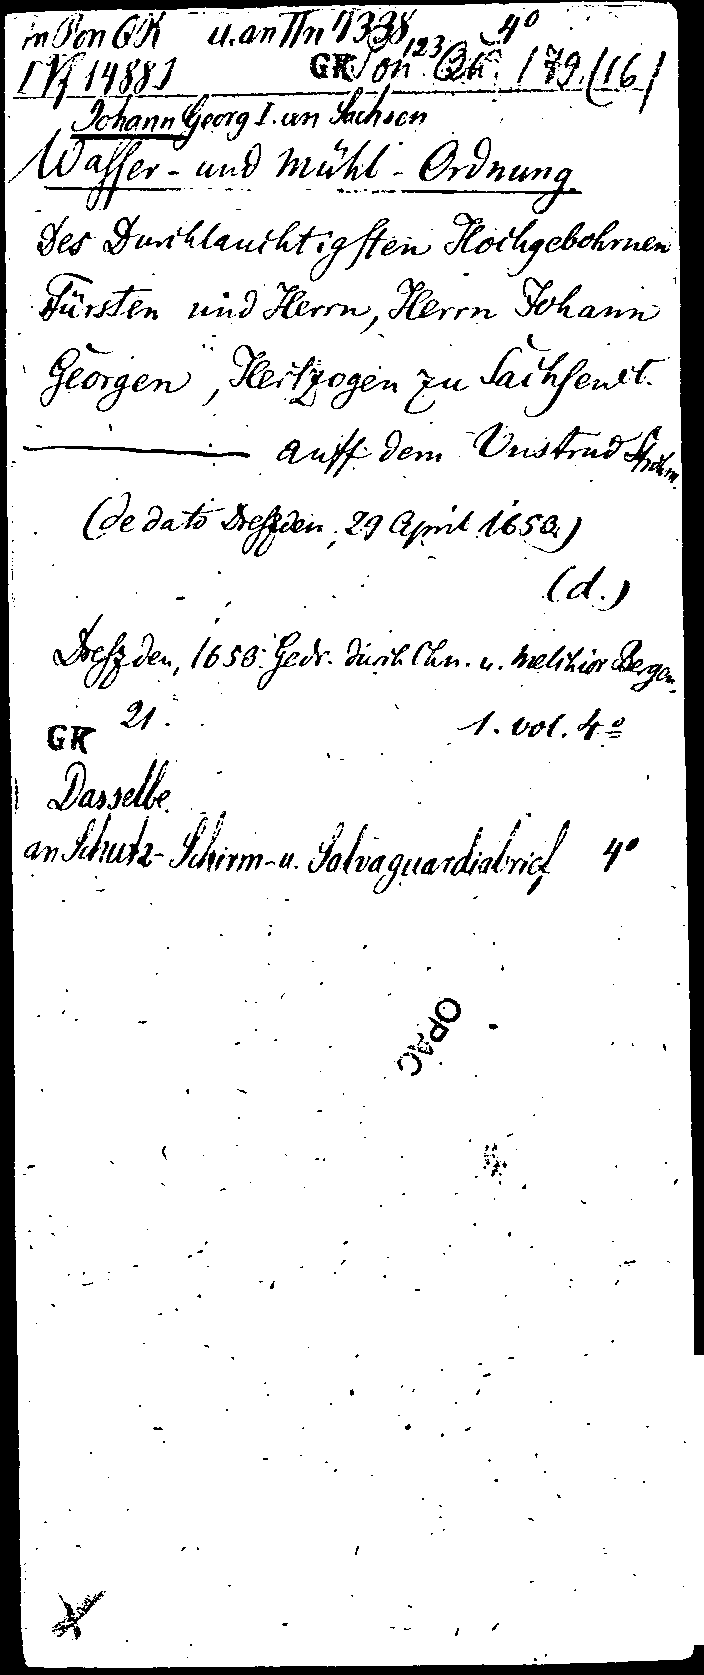 in Pon QK u. an IIn 4338 4°
[Vf 1488] GK Pon 123 QK. 179. (16)
Johann Georg I. von Sachsen
Wasser- und Mühl-Ordnung
Des Durchlauchtigsten Hochgebohrnen
Fürsten und Herrn, Herrn Johann
Georgen, Hertzogen zu Sachsen
auff dem Unstrud Strohm.
(de dato Dreßden, 29 April 1653.)
(d.)
Dreßden, 1653. Gedr. durch Chn. u. Melchior Bergen.
21. 1. vol. 4°
GK
Dasselbe.
an Schutz- Schirm- u. Salvaguardiabrief 4°
OPAC